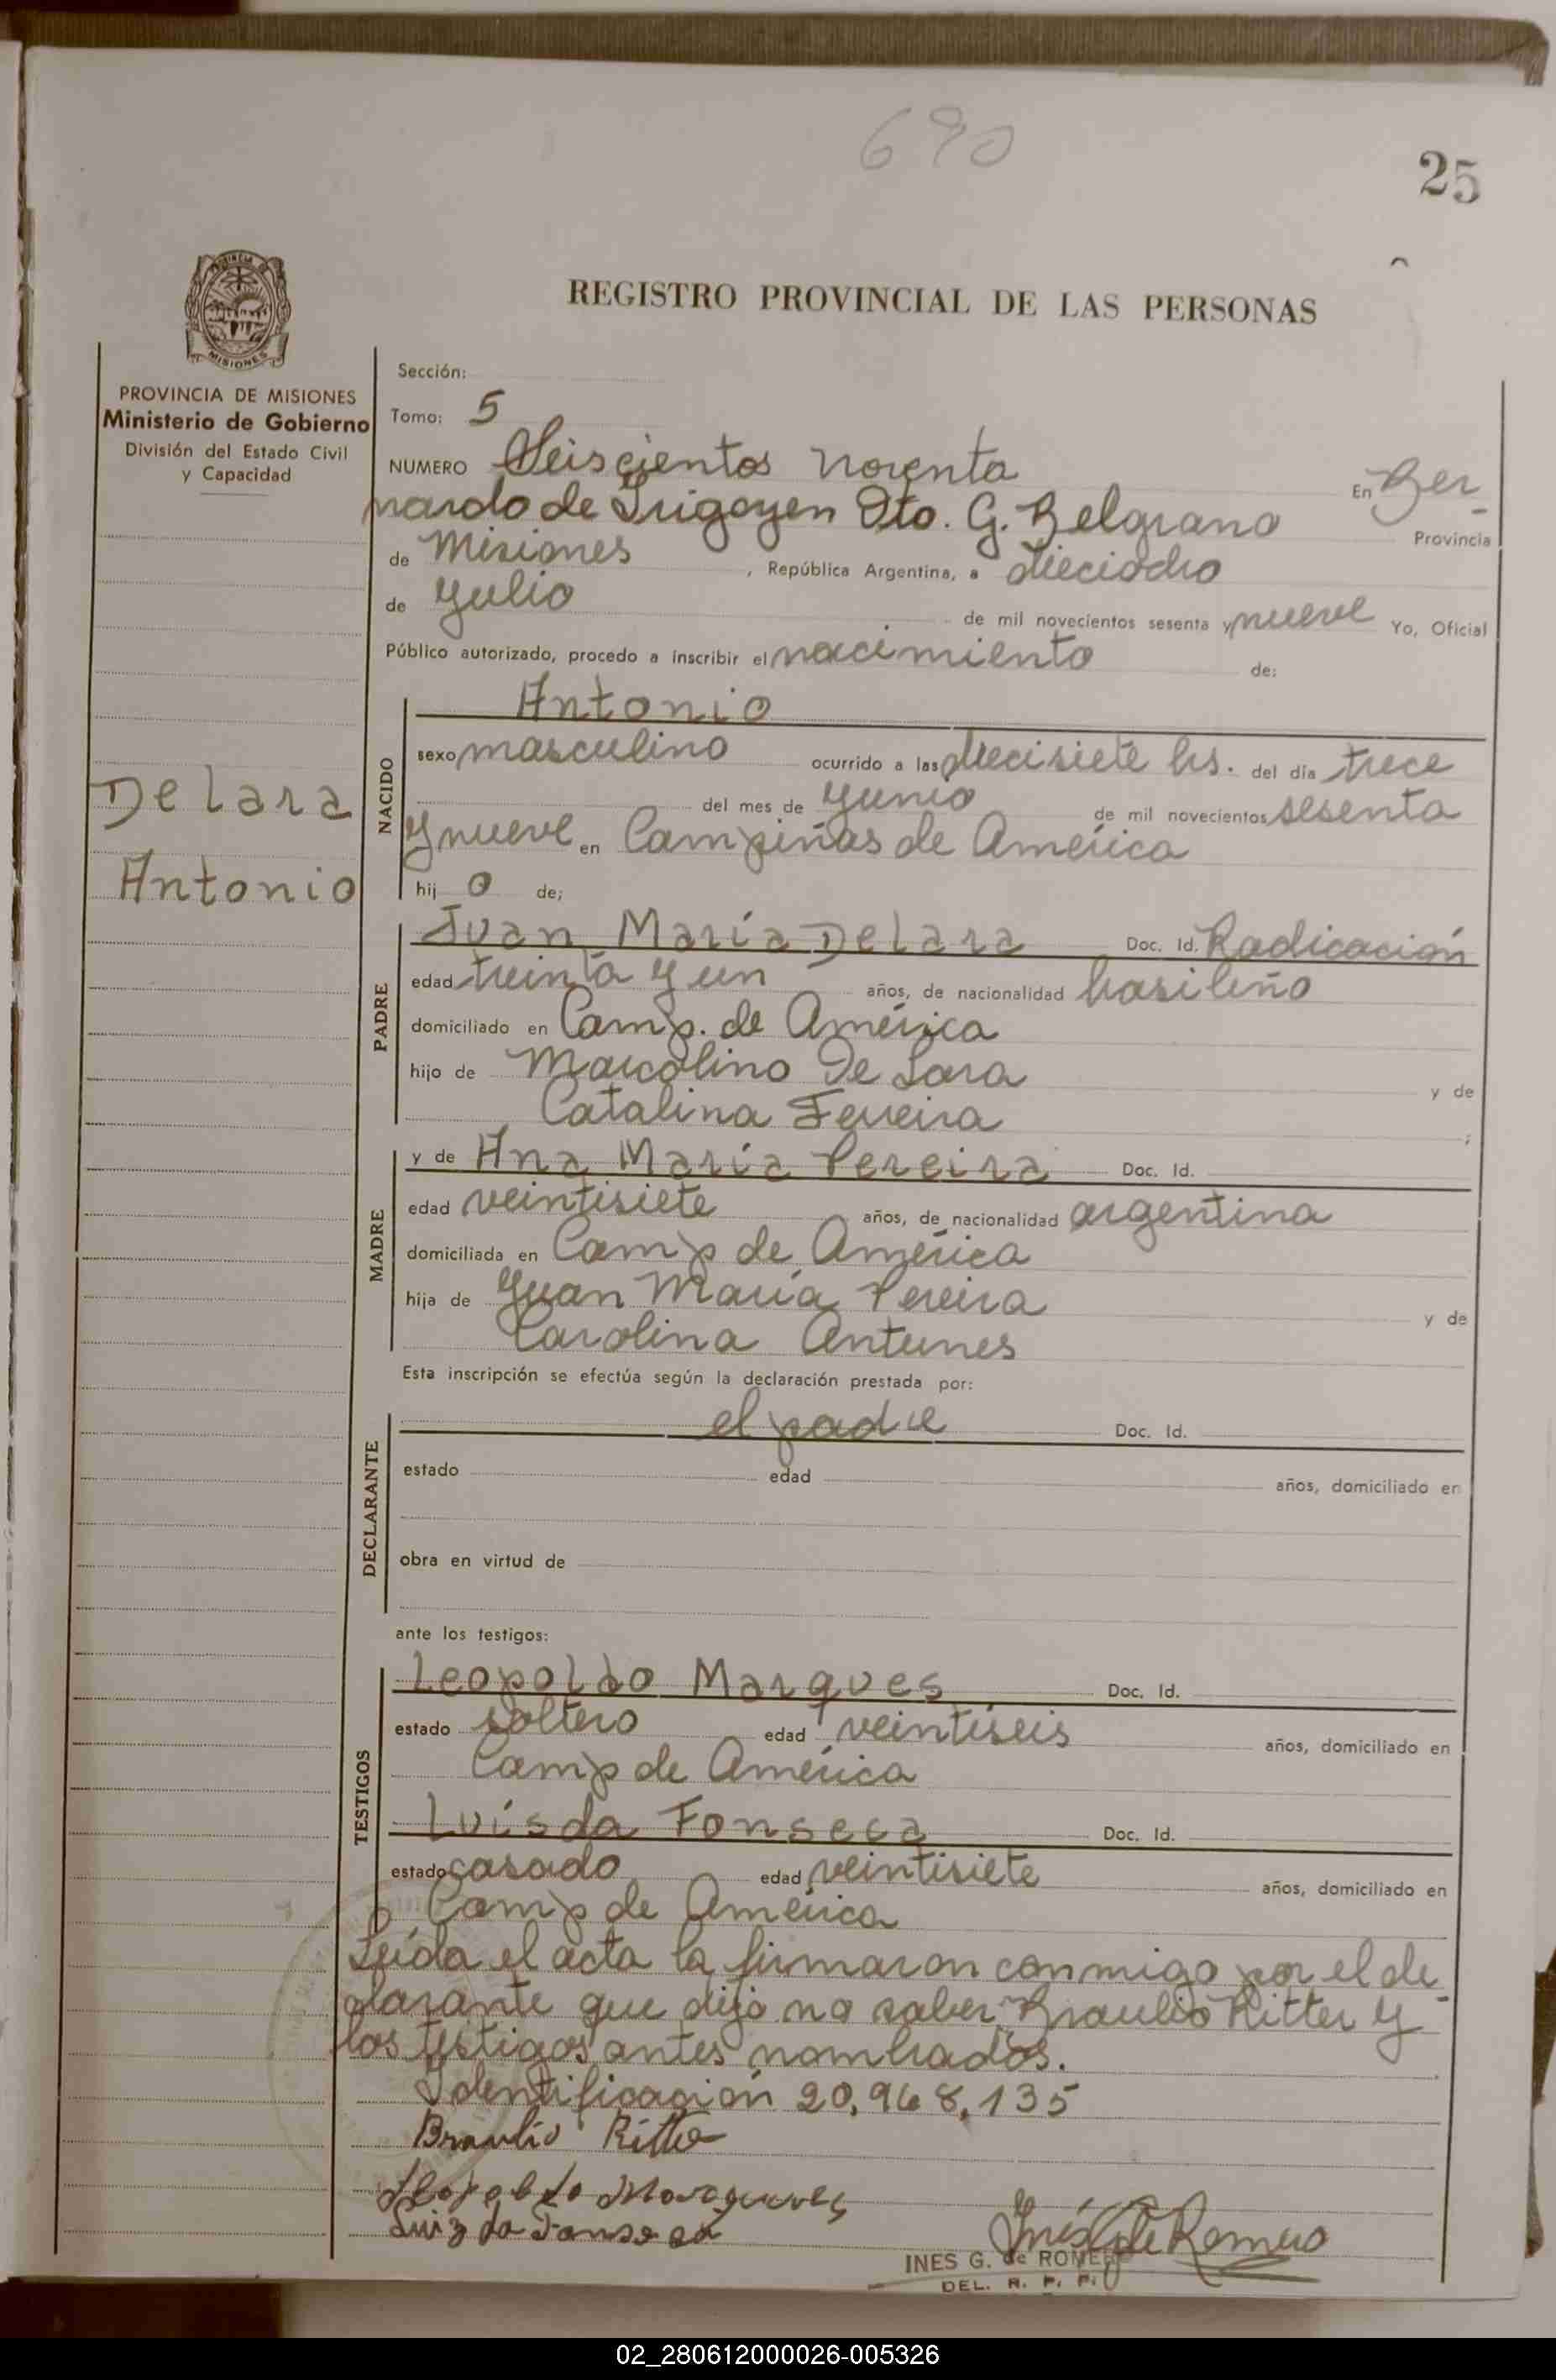 690
25
REGISTRO PROVINCIAL DE LAS PERSONAS
PROVINCIA DE MISIONES
Ministerio de Gobierno
División del Estado Civil
y Capacidad
De Lara
Antonio
Sección:
Tomo: 5
NUMERO Seiscientos noventa En Ber-
nardo de Irigoyen Dto. G. Belgrano Provincia
de Misiones, República Argentina, a dieciocho
de Julio de mil novecientos sesenta y nueve Yo, Oficial
Público autorizado, procedo a inscribir el nacimiento de:
NACIDO
Antonio
sexo masculino ocurrido a las diecisiete hs. del día trece
del mes de Junio de mil novecientos sesenta
y nueve en Campiñas de América
hijo de;
PADRE
Juan María De Lara Doc. Id. Radicación
edad treinta y un años, de nacionalidad brasileño
domiciliado en Camp. de América
hijo de Marcolino De Lara y de
Catalina Ferreira ;
MADRE
y de Ana María Pereira Doc. Id.
edad veintisiete años, de nacionalidad argentina
domiciliada en Camp de América
hija de Juan María Pereira y de
Carolina Antunes
Esta inscripción se efectúa según la declaración prestada por:
DECLARANTE
el padre Doc. Id.
estado edad años, domiciliado en
obra en virtud de
ante los testigos:
TESTIGOS
Leopoldo Marques Doc. Id.
estado soltero edad veintiseis años, domiciliado en
Camp de América
Luis da Fonseca Doc. Id.
estado casado edad veintisiete años, domiciliado en
Camp de América
Leída el acta la firmaron conmigo por el de-
clarante que dijo no saber, Braulio Ritter y
los testigos antes nombrados.
Identificación 20.968.135
Braulio Ritter
Leopoldo Marques
Luiz da Fonseca
Inés G. de Romero
INES G. de ROMERO
DEL. R. P. P.
02_280612000026-005326